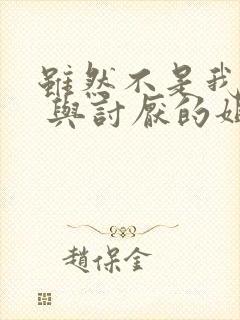 雖然不是我
與討厭的如
趙保金